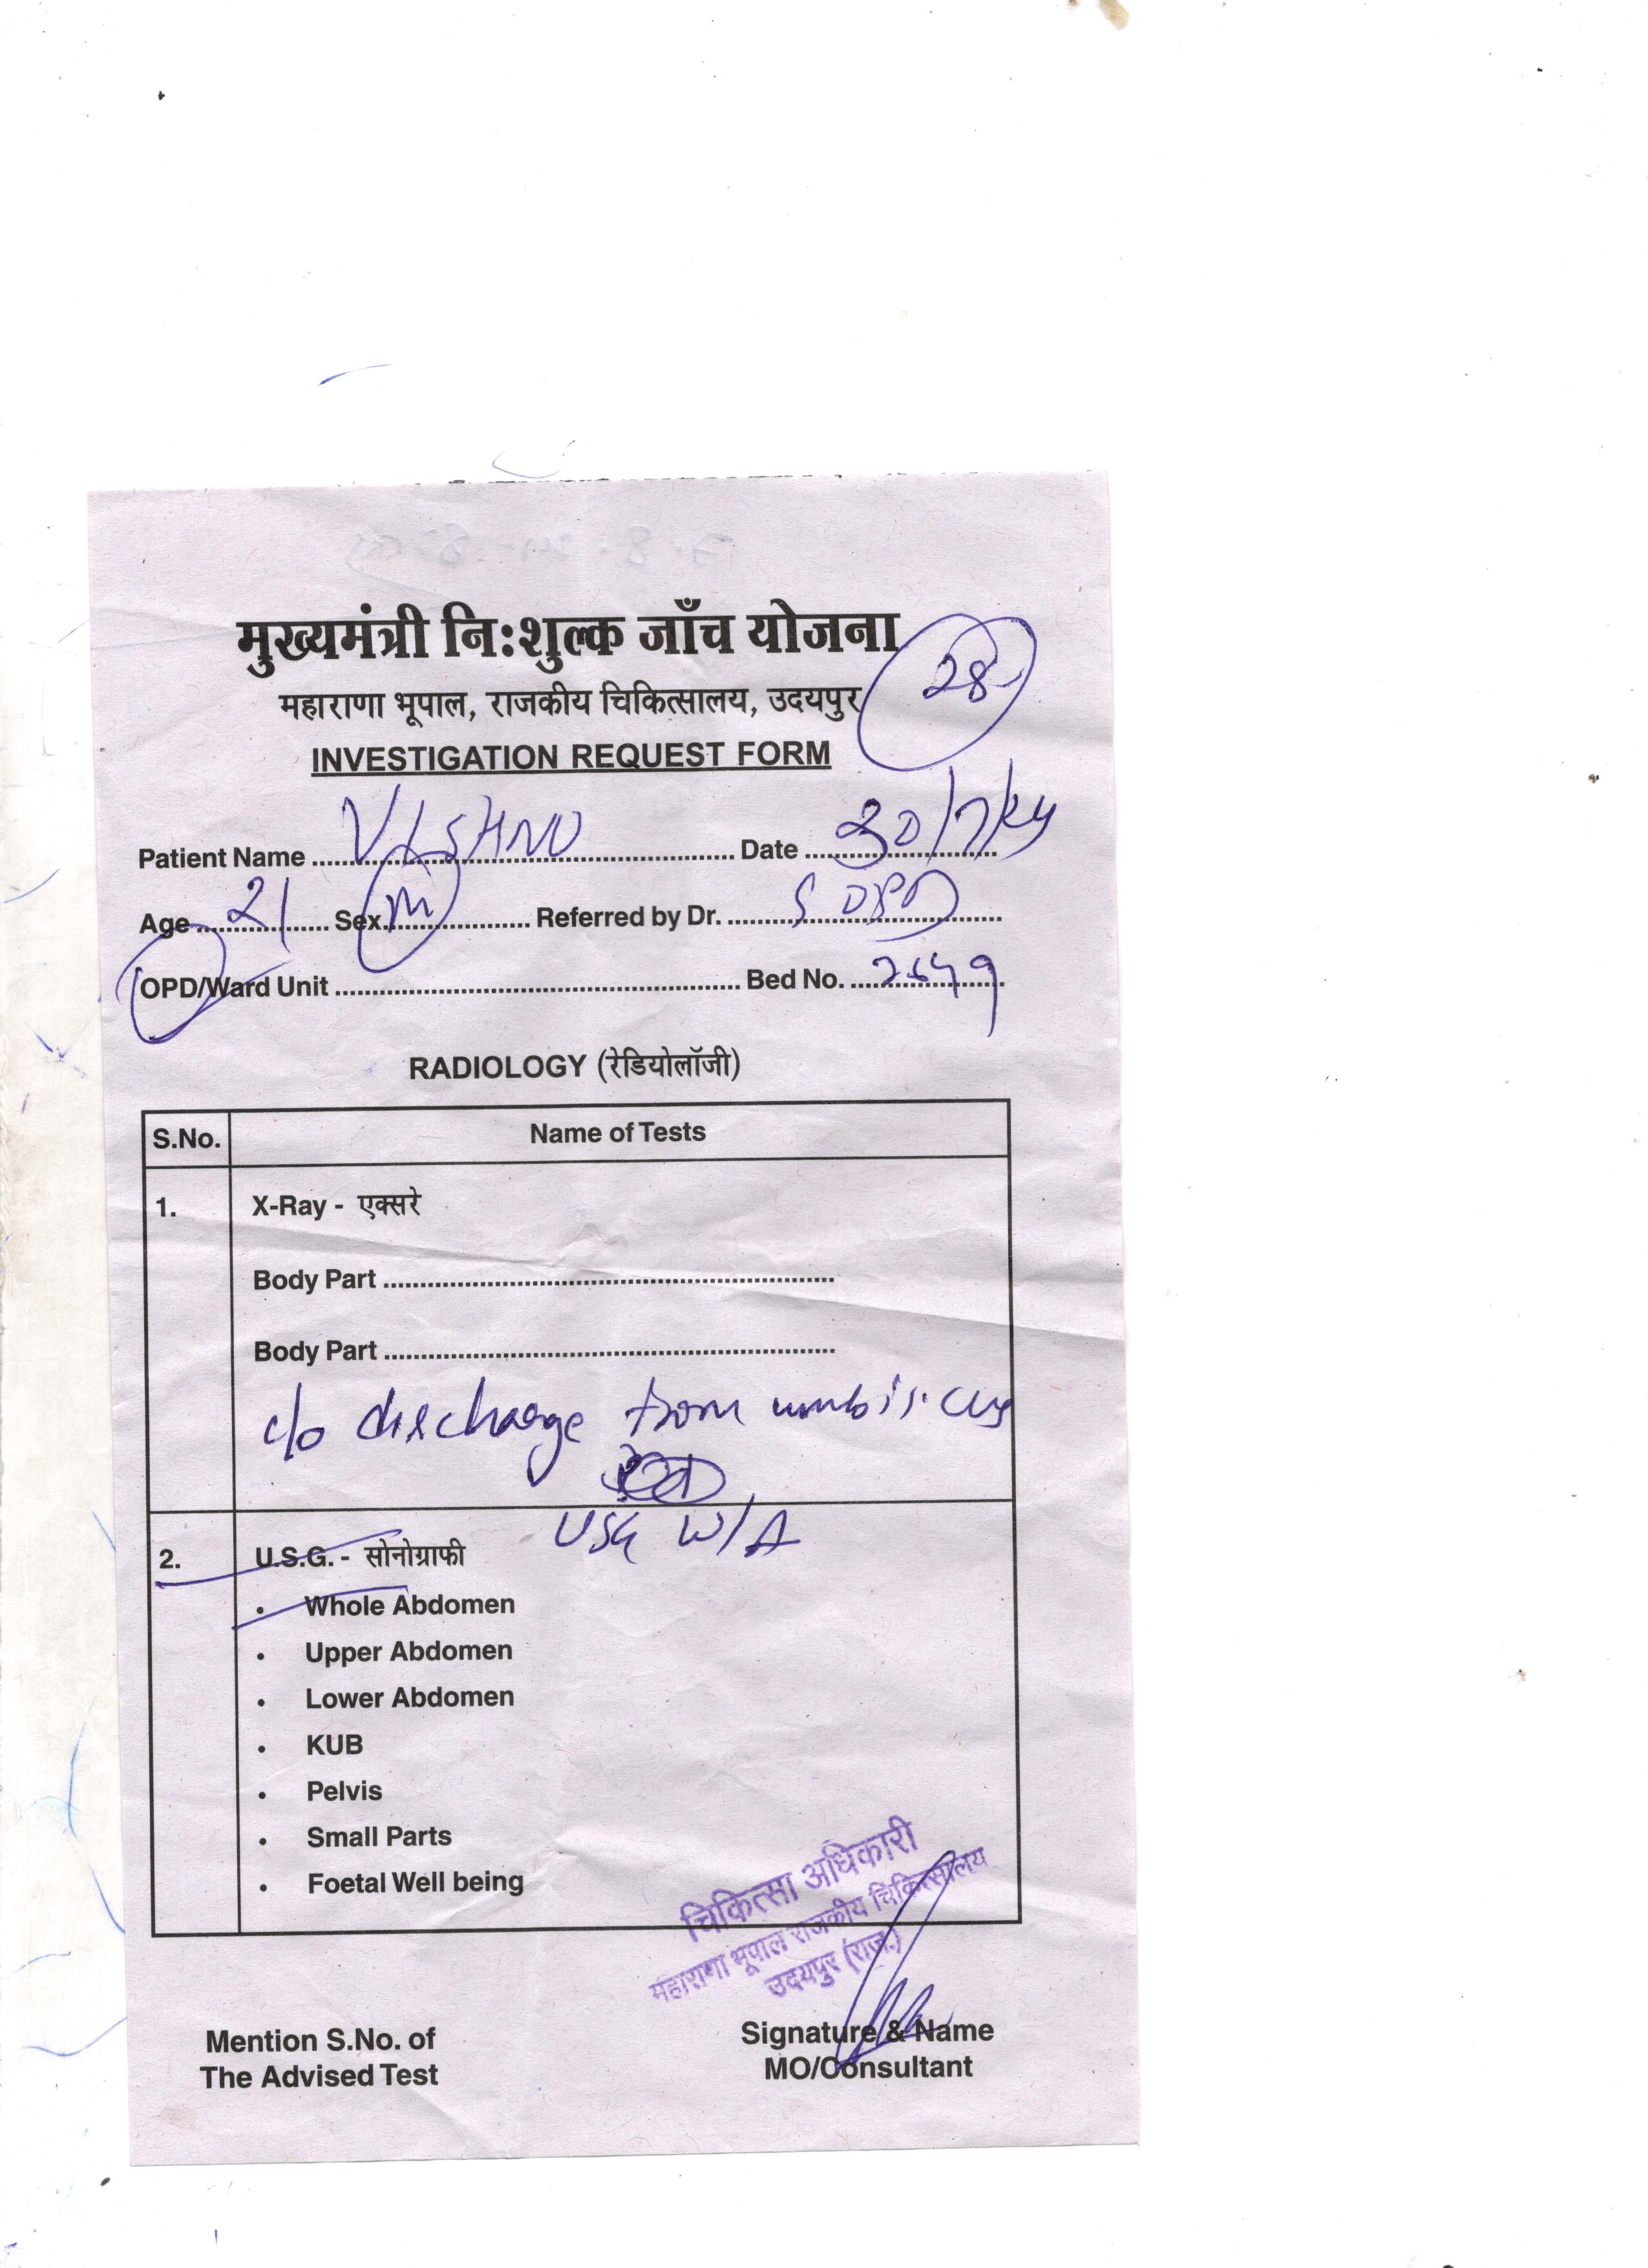 मुख्यमंत्री निःशुल्क जाँच योजना
महाराणा भूपाल, राजकीय चिकित्सालय, उदयपुर
28
INVESTIGATION REQUEST FORM
Patient Name VISHNU Date 30/7/24
Age 21 Sex M Referred by Dr. S OPD
OPD/Ward Unit Bed No.
RADIOLOGY (रेडियोलॉजी)
S.No. Name of Tests
1. X-Ray - एक्सरे
Body Part
Body Part
c/o discharge from umbilicus
USG W/A
2. U.S.G. - सोनोग्राफी
• Whole Abdomen
• Upper Abdomen
• Lower Abdomen
• KUB
• Pelvis
• Small Parts
• Foetal Well being
चिकित्सा अधिकारी
महाराणा भूपाल राजकीय चिकित्सालय
उदयपुर (राज.)
Mention S.No. of
The Advised Test
Signature & Name
MO/Consultant